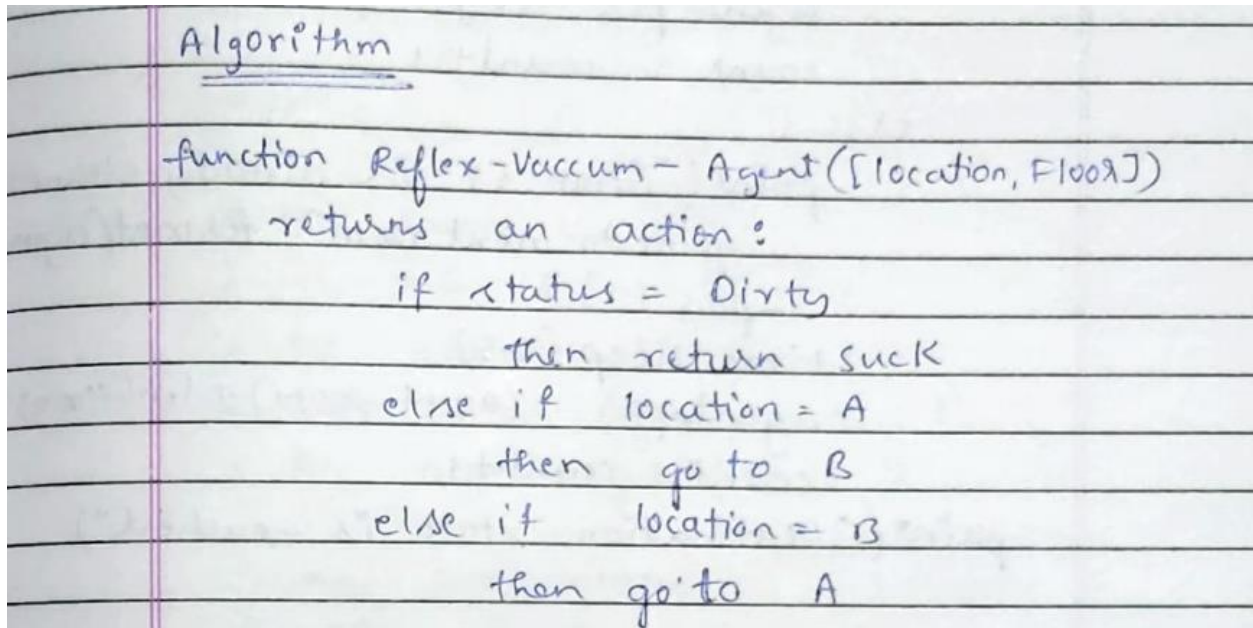 Algorithm
function Reflex-Vaccum-Agent([location, Floor])
returns an action:
if status = Dirty
then return suck
else if location = A
then go to B
else if location = B
then go to A